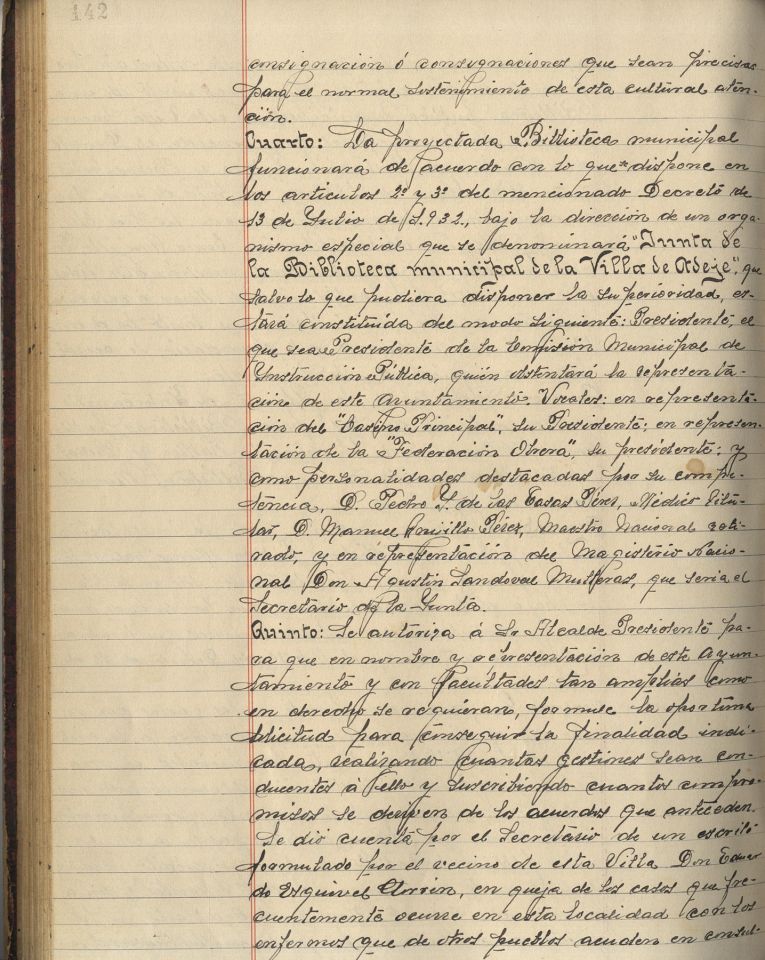 142
consignación ó consignaciones que sean precisas
para el normal sostenimiento de esta cultural aten-
ción.
Cuarto: La proyectada Biblioteca municipal
funcionará de acuerdo con lo que dispone en
los articulos 2º y 3º del mencionado Decreto de
13 de Julio de 1.932, bajo la dirección de un orga-
nismo especial que se denominará "Junta de
la Biblioteca municipal de la Villa de Adeje", que
salvo lo que pudiera disponer la superioridad, es-
tará constituída del modo siguiente: Presidente, el
que sea Presidente de la Comisión Municipal de
Ynstrucción Pública, quién ostentará la representa-
ción de este Ayuntamiento. Vocales: en representa-
ción del "Casino Principal", su Presidente; en represen-
tación de la "Federación Obrera", su presidente; y
como personalidades destacadas por su compe-
tencia, D. Pedro Y. de las Casas Pérez, Médico titu-
lar, D. Manuel Trujillo Pérez, Maestro Nacional reti-
rado, y en representación del Magisterio Nacio-
nal Don Agustin Sandoval, que seria el
Secretario de la Junta.
Quinto: Se autoriza á Sr Alcalde Presidente pa-
ra que en nombre y representación de este Ayun-
tamiento y con facultades tan amplias como
en derecho se requieran, formule la oportuna
solicitud para conseguir la finalidad indi-
cada, realizando cuantas gestiones sean con-
ducentes á ello y suscribiendo cuantos compro-
misos se deriven de los acuerdos que anteceden.
Se dió cuenta por el Secretario de un escrito
formulado por el vecino de esta Villa Don Eduar-
do Esquivel, en queja de los casos que fre-
cuentemente ocurre en esta localidad con los
enfermos que de otros pueblos acuden en consul-